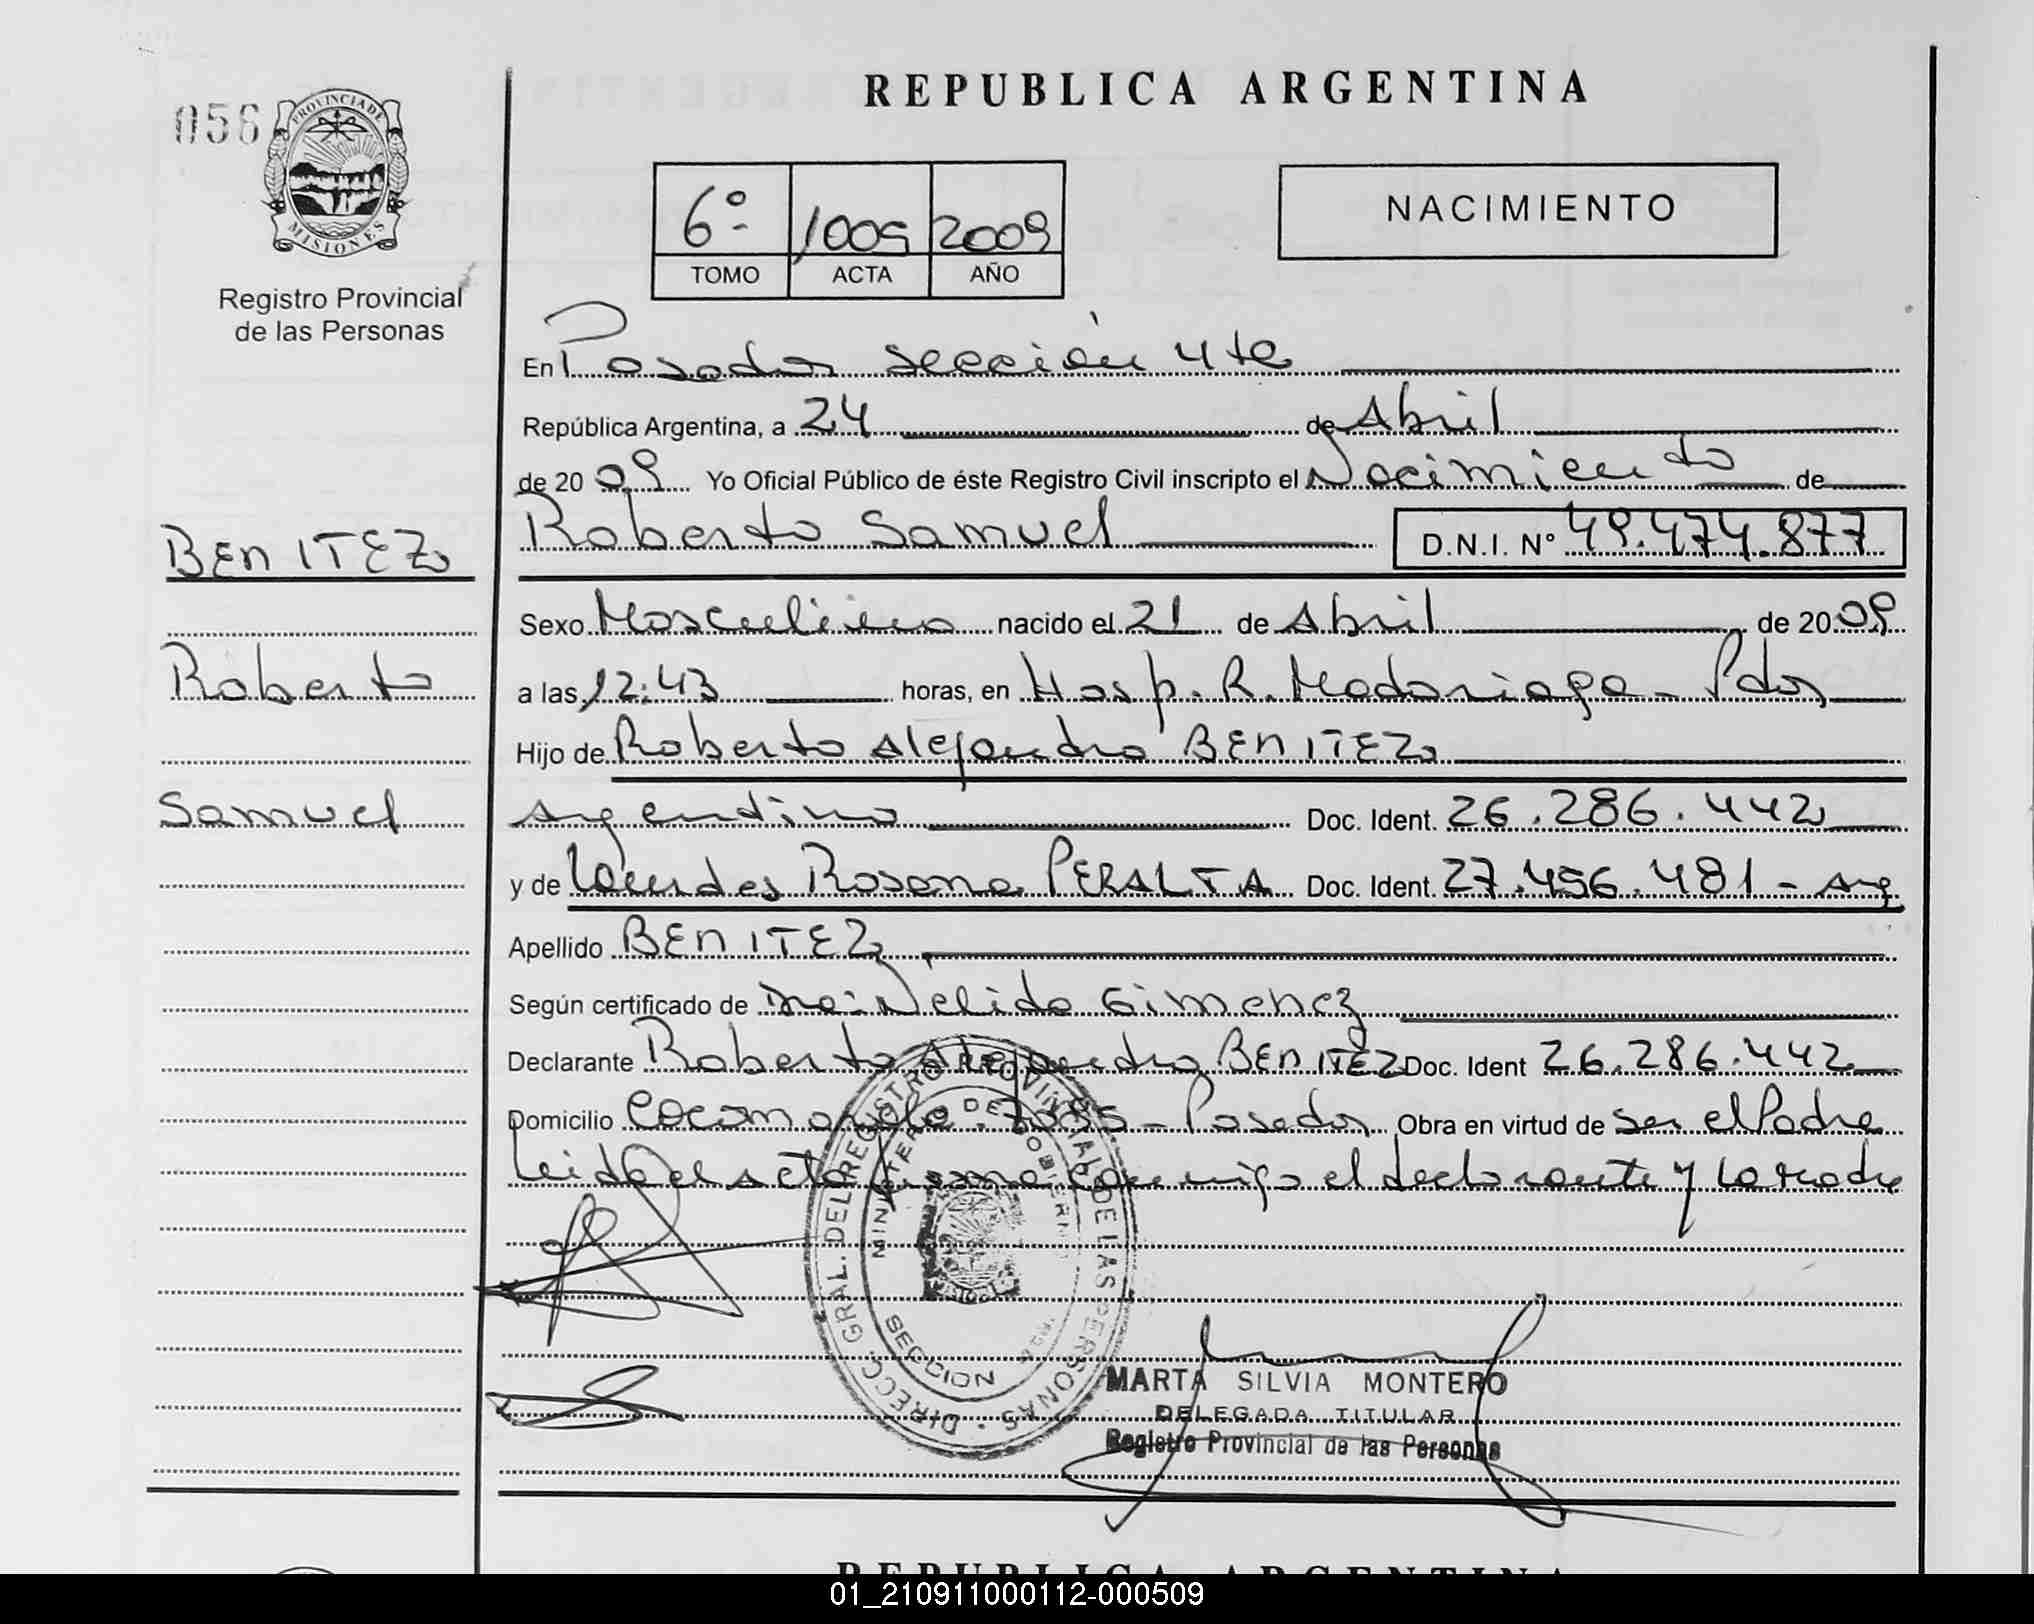 REPUBLICA ARGENTINA
056
PROVINCIA DE
MISIONES
Registro Provincial
de las Personas
6º 1009 2009
TOMO ACTA AÑO
NACIMIENTO
En Posadas sección 4ta
República Argentina, a 24 de Abril
de 2009 Yo Oficial Público de éste Registro Civil inscripto el Nacimiento de
Roberto Samuel D.N.I. Nº 49.474.877
BENITEZ
Roberto
Samuel
Sexo Masculino nacido el 21 de Abril de 2009
a las 12:43 horas, en Hosp. R. Madariaga - Pdas
Hijo de Roberto Alejandro BENITEZ
Argentino Doc. Ident. 26.286.442
y de Lourdes Rosana PERALTA Doc. Ident. 27.456.481 - Arg
Apellido BENITEZ
Según certificado de Dra. Nelida Gimenez
Declarante Roberto Alejandro BENITEZ Doc. Ident 26.286.442
Domicilio Posadas Obra en virtud de ser el Padre
Leida el acta firma conmigo el declarante y la madre
DIRECC. GRAL. DEL REGISTRO PROVINCIAL DE LAS PERSONAS
MINISTERIO DE GOBIERNO
SECCION
MARTA SILVIA MONTERO
DELEGADA TITULAR
Registro Provincial de las Personas
REPUBLICA ARGENTINA
01_210911000112-000509